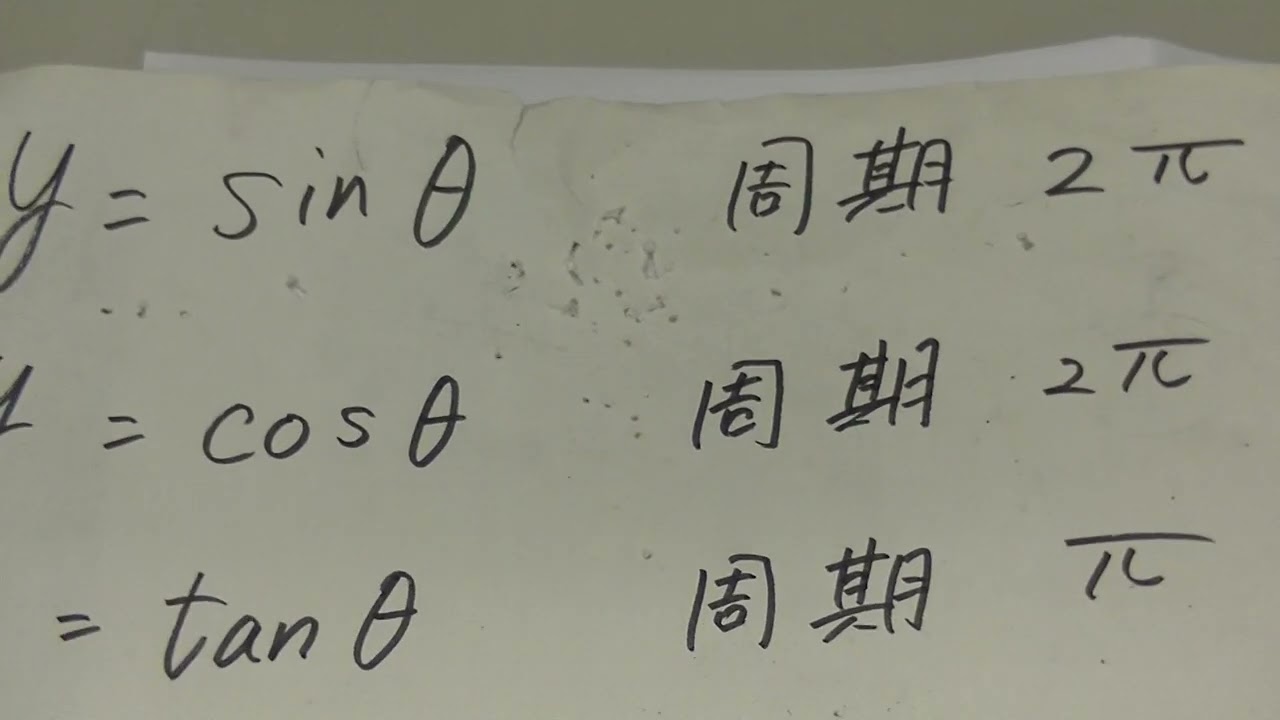 y = sin θ 周期 2π
y = cos θ 周期 2π
= tan θ 周期 π